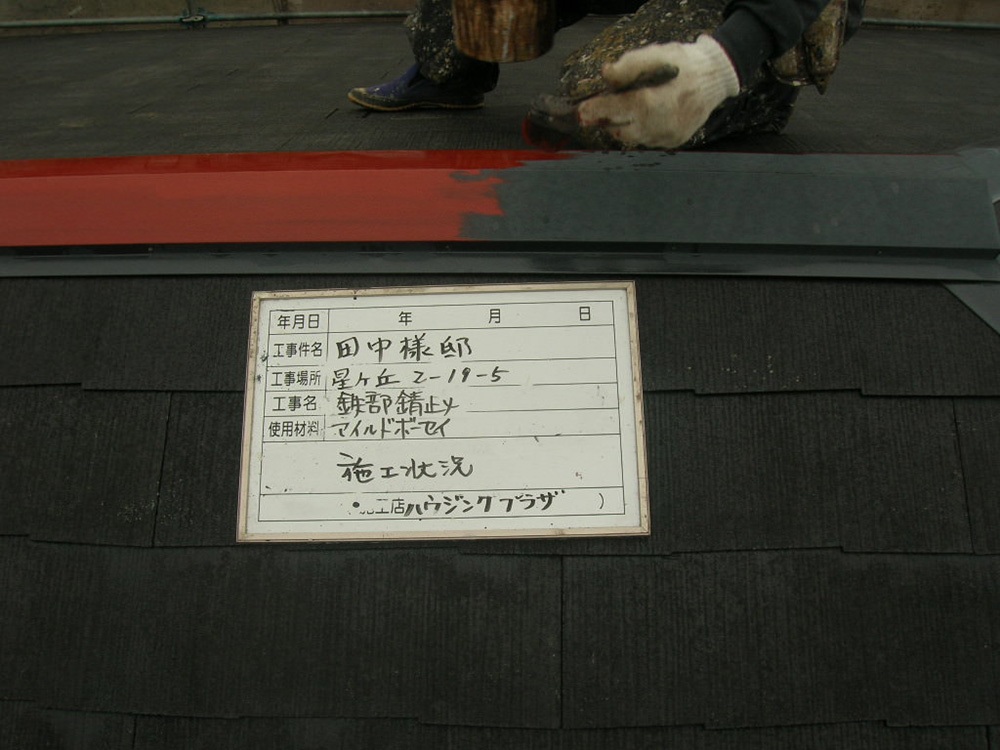 年月日 年 月 日
工事件名 田中様邸
工事場所 星ヶ丘 2-19-5
工事名 鉄部錆止メ
使用材料 マイルドボーセイ
施工状況
施工店 ハウジングプラザ )